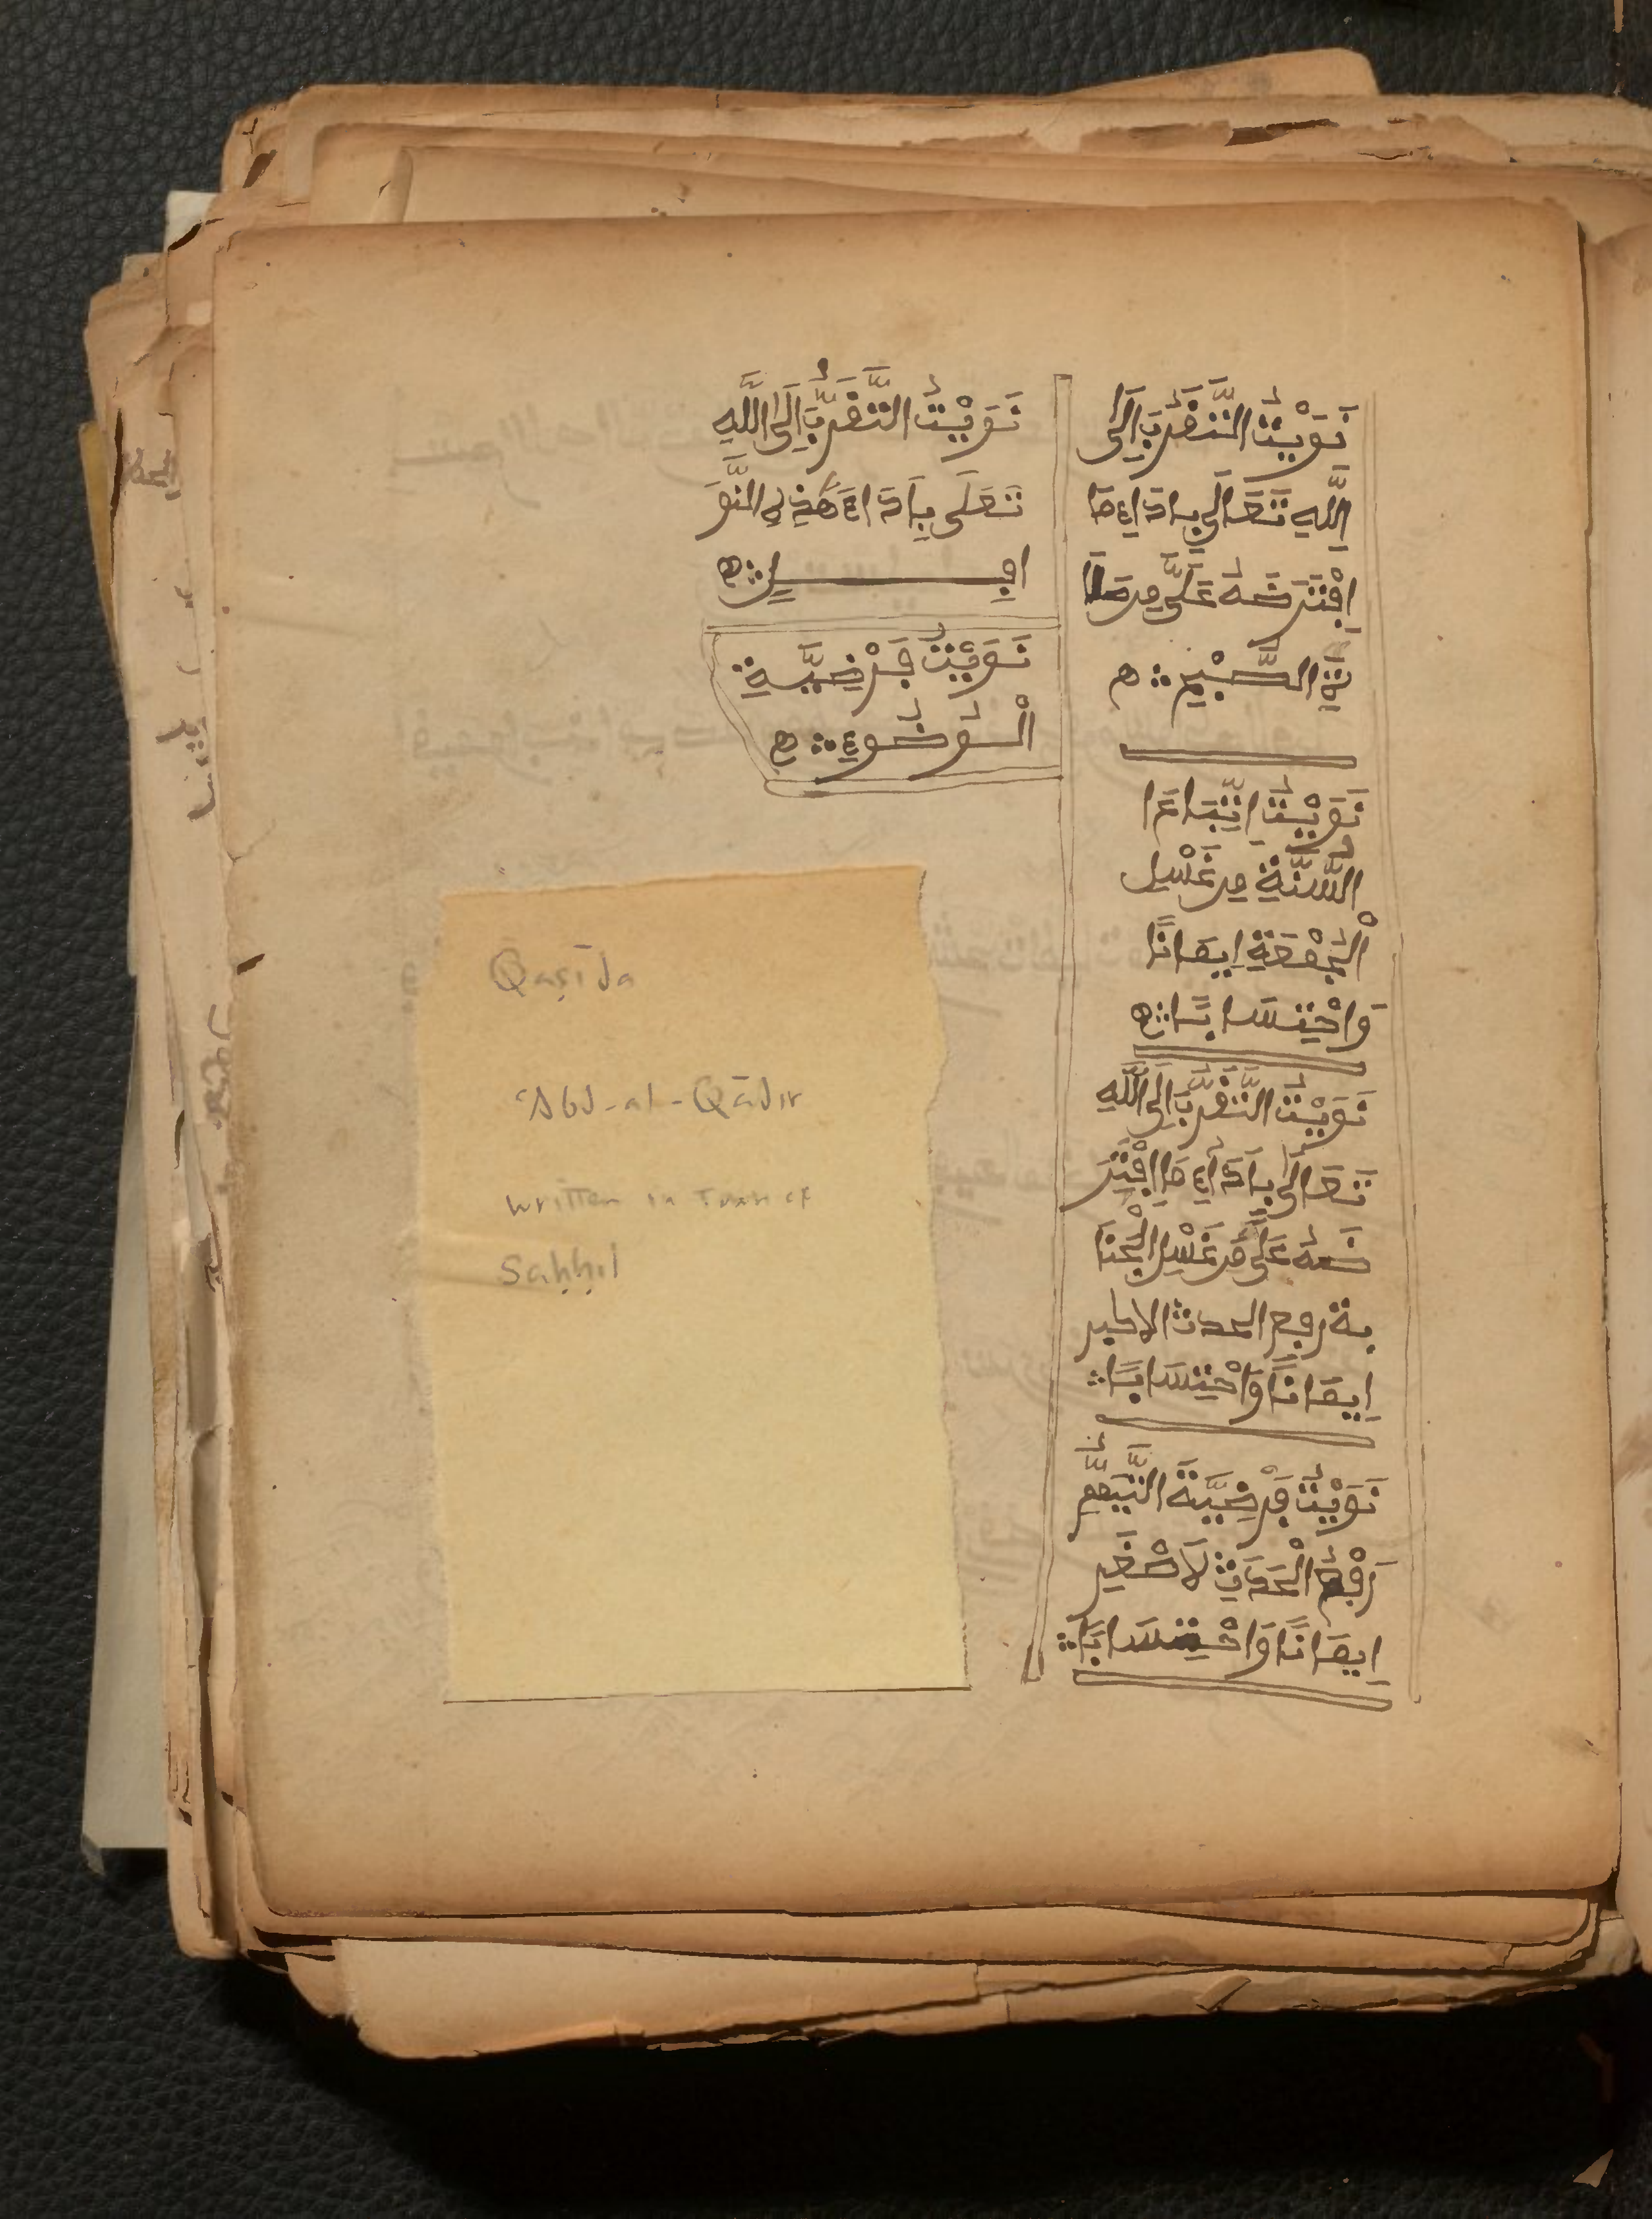 نَوَيْتُ التَّقَرُّبَ إِلَى
اللَّهِ تَعَالَى بِأَدَاءِ مَا
اِفْتَرَضَهُ عَلَىَّ مِن صَلَا
ةِ الصُّبْحِ ه
نَوَيْتُ اِتِّبَاعَا
السُّنَّةِ مِن غَسْلِ
الْجُمْعَةِ إِيمَانًا
وَاحْتِسَابًا ه
نَوَيْتُ التَّقَرُّبَ إِلَى اللَّهِ
تَعَالَى بِأَدَاءِ مَا اِفْتَرَ
ضَهُ عَلَىَّ مِن غَسْلِ الْجَنَا
بة رفع الحدث الاكبر
إِيمَانًا وَاحْتِسَابًا
نَوَيْتُ فَرْضِيَّةَ التَّيَمُّمِ
رَفْعُ الْحَدَثِ لَاصْغَرِ
إِيمَانًا وَاحْتِسَابًا
نَوَيْتُ التَّقَرُّبَ إِلَى اللَّهِ
تَعَلَى بِأَدَاءَ هَذِهِ النَّوَ
افِلِ ه
نَوَيْتُ فَرْضِيَّةِ
الْوُضُوءِ ه
Qaṣīda
ʿAbd-al-Qādir
written in Tuan of
Saḥḥil